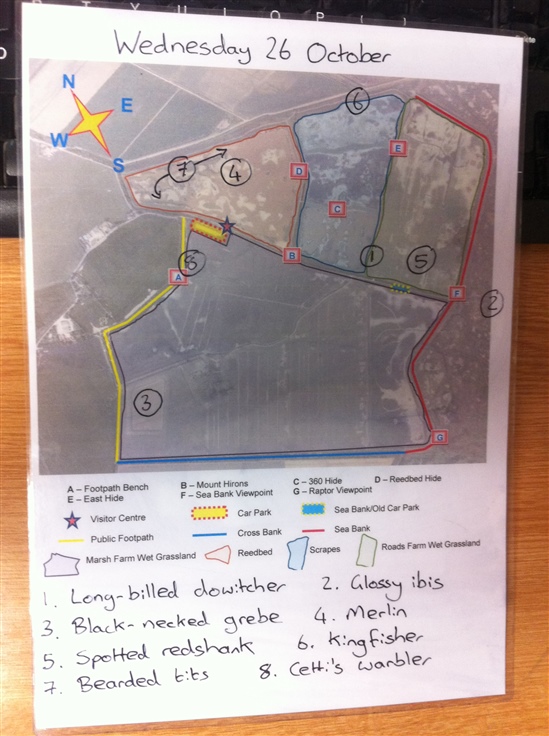 Wednesday 26 October
N
E
W
S
6
E
7
4
D
C
8
B
1
5
A
F
2
3
G
A – Footpath Bench B – Mount Hirons C – 360 Hide D – Reedbed Hide
E – East Hide F – Sea Bank Viewpoint G – Raptor Viewpoint
Visitor Centre Car Park Sea Bank/Old Car Park
Public Footpath Cross Bank Sea Bank
Marsh Farm Wet Grassland Reedbed Scrapes Roads Farm Wet Grassland
1. Long-billed dowitcher 2. Glossy ibis
3. Black-necked grebe 4. Merlin
5. Spotted redshank 6. Kingfisher
7. Bearded tits 8. Cetti's warbler